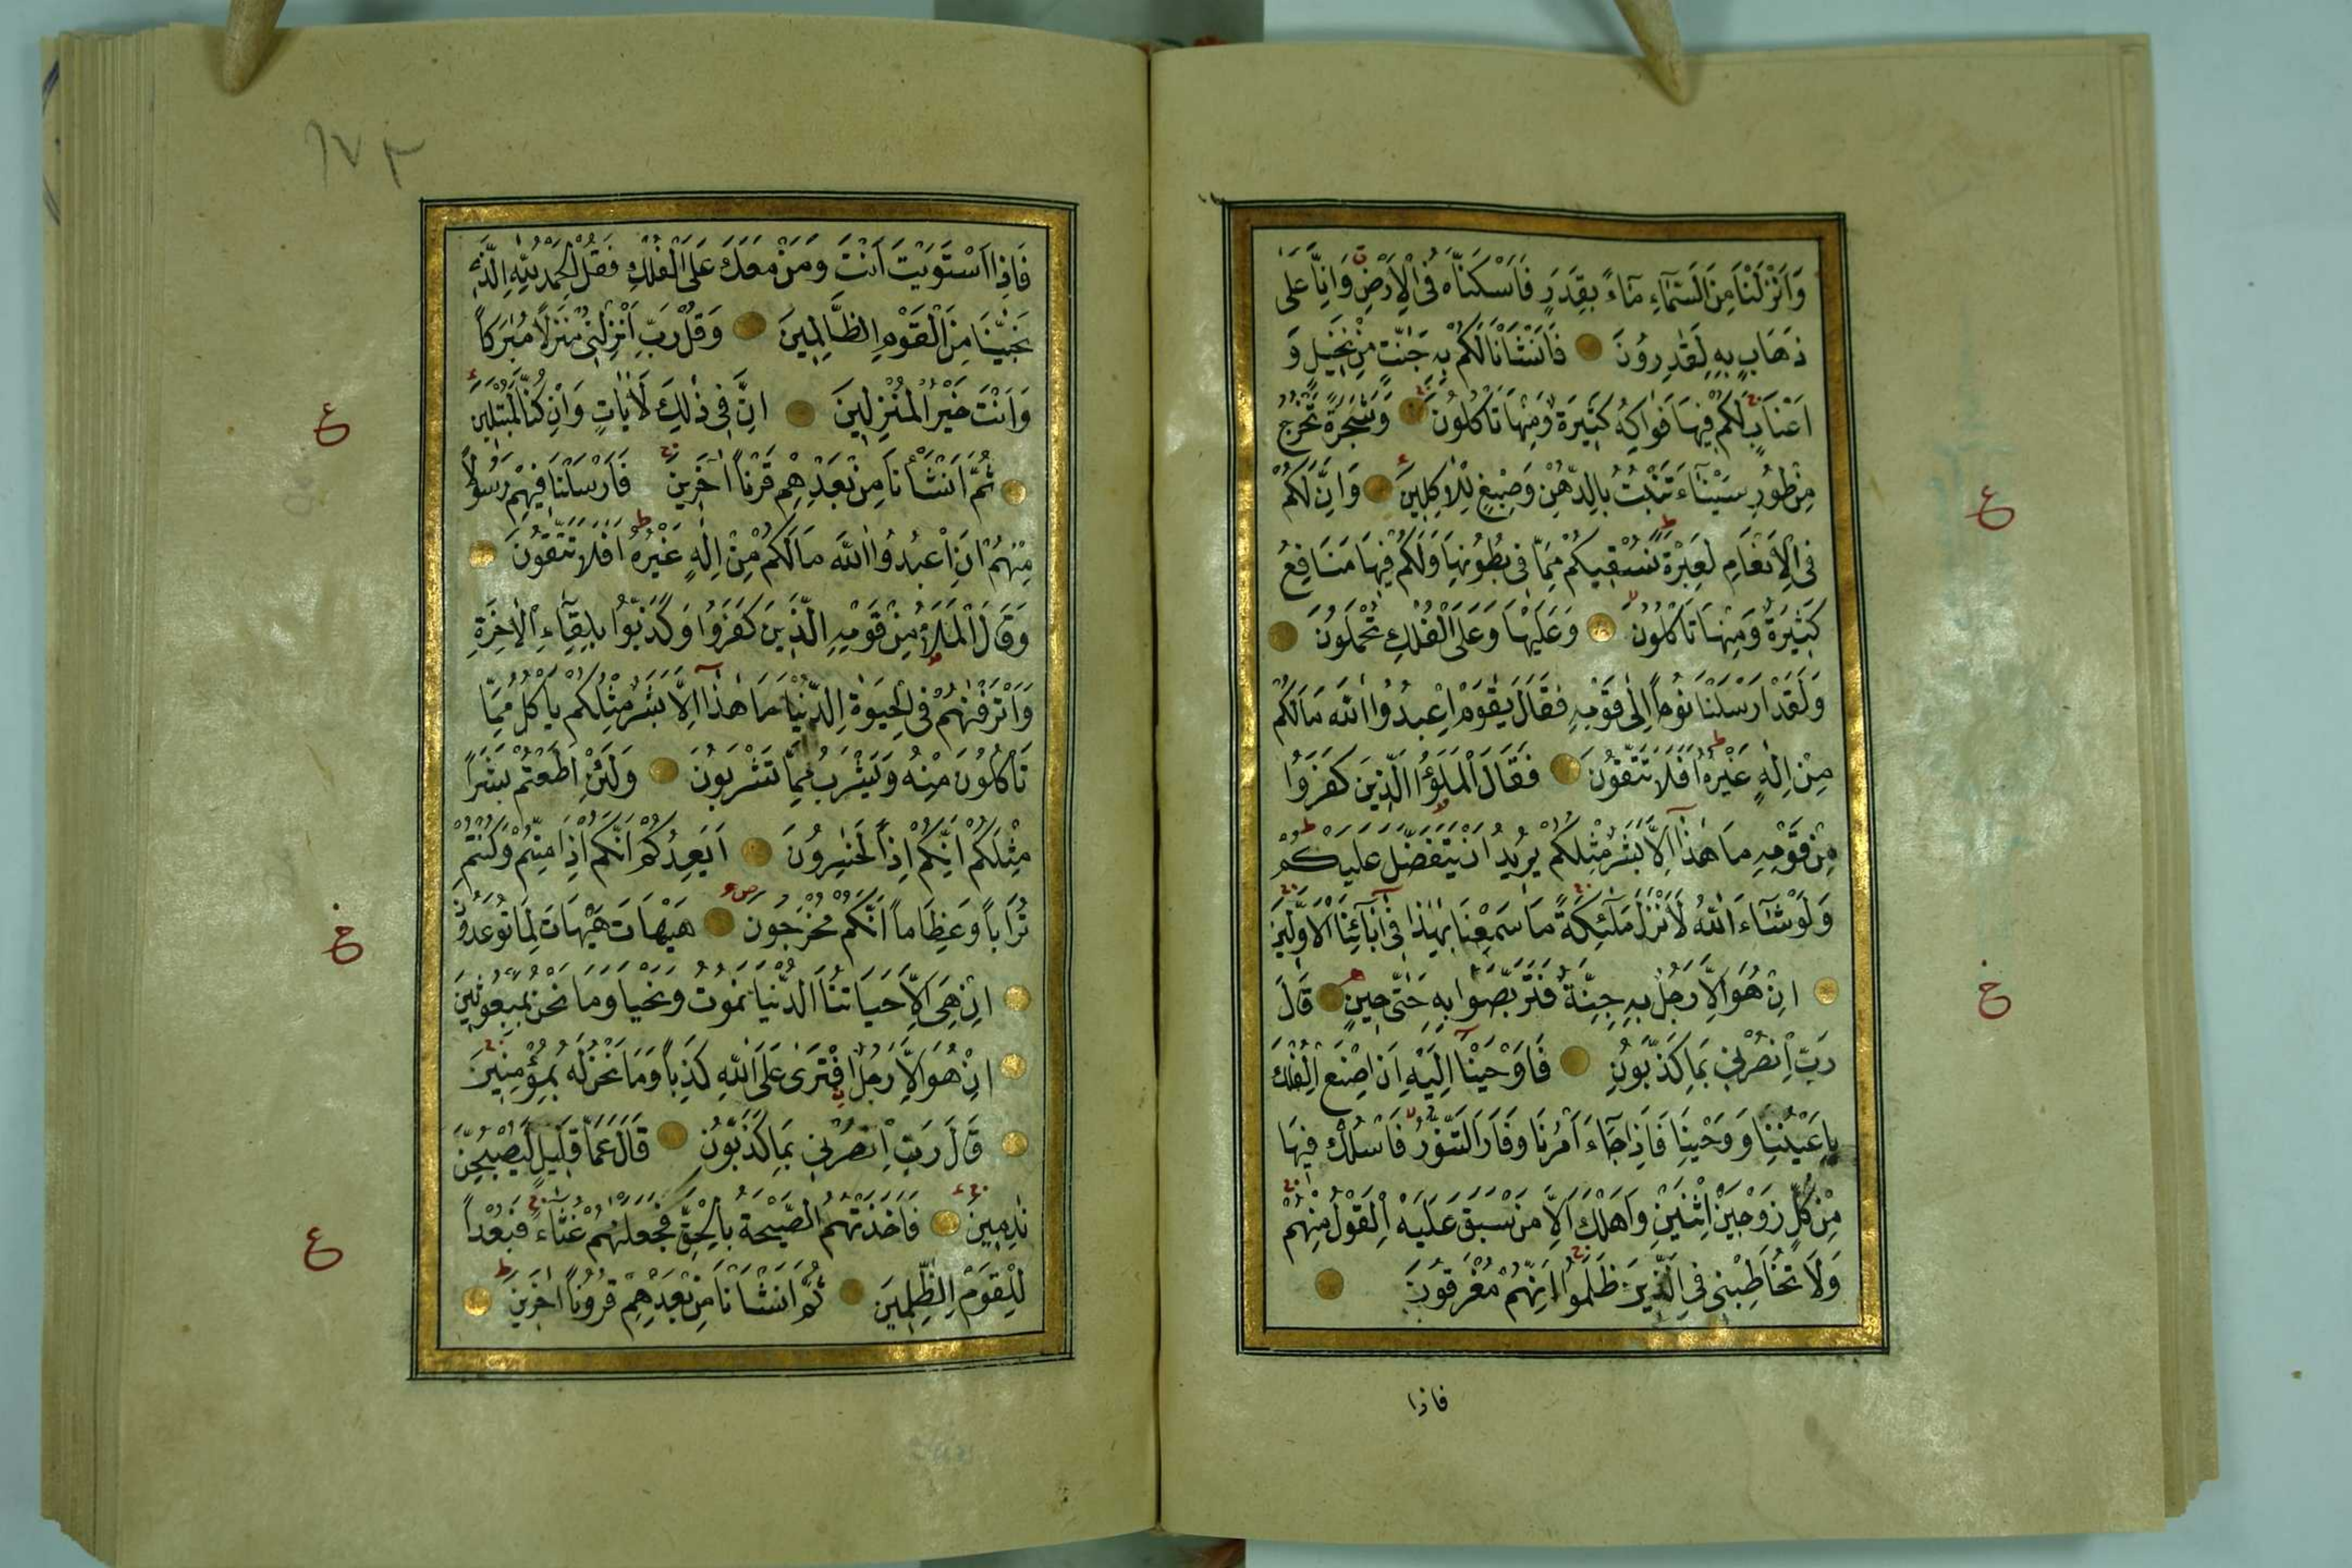 وَاَنْزَلْنَا مِنَ السَّمَٓاءِ مَٓاءً بِقَدَرٍ فَاَسْكَنَّاهُ فِى الْاَرْضِ وَاِنَّا عَلٰى
ذَهَابٍ بِهِ لَقٰدِرُونَ فَاَنْشَاْنَا لَكُمْ بِهِ جَنّٰتٍ مِنْ نَخ۪يلٍ وَ
اَعْنَابٍ لَكُمْ ف۪يهَا فَوَاكِهُ كَث۪يرَةٌ وَمِنْهَا تَاْكُلُونَ وَشَجَرَةً تَخْرُجُ
مِنْ طُورِ سَيْنَٓاءَ تَنْبُتُ بِالدُّهْنِ وَصِبْغٍ لِلْاٰكِل۪ينَ وَاِنَّ لَكُمْ
فِى الْاَنْعَامِ لَعِبْرَةً نُسْق۪يكُمْ مِمَّا ف۪ى بُطُونِهَا وَلَكُمْ ف۪يهَا مَنَافِعُ
كَث۪يرَةٌ وَمِنْهَا تَاْكُلُونَ وَعَلَيْهَا وَعَلَى الْفُلْكِ تُحْمَلُونَ
وَلَقَدْ اَرْسَلْنَا نُوحاً اِلٰى قَوْمِهِ فَقَالَ يٰقَوْمِ اعْبُدُوا اللهَ مَا لَكُمْ
مِنْ اِلٰهٍ غَيْرُهُ اَفَلَا تَتَّقُونَ فَقَالَ الْمَلَؤُا الَّذ۪ينَ كَفَرُوا
مِنْ قَوْمِهِ مَا هٰذَٓا اِلَّا بَشَرٌ مِثْلُكُمْ يُر۪يدُ اَنْ يَتَفَضَّلَ عَلَيْكُمْ
وَلَوْ شَٓاءَ اللهُ لَاَنْزَلَ مَلٰٓئِكَةً مَا سَمِعْنَا بِهٰذَا ف۪ٓى اٰبَٓائِنَا الْاَوَّل۪ينَ
اِنْ هُوَ اِلَّا رَجُلٌ بِهِ جِنَّةٌ فَتَرَبَّصُوا بِهِ حَتّٰى ح۪ينٍ قَالَ
رَبِّ انْصُرْن۪ى بِمَا كَذَّبُونِ فَاَوْحَيْنَٓا اِلَيْهِ اَنِ اصْنَعِ الْفُلْكَ
بِاَعْيُنِنَا وَوَحْيِنَا فَاِذَا جَٓاءَ اَمْرُنَا وَفَارَ التَّنُّورُ فَاسْلُكْ ف۪يهَا
مِنْ كُلٍّ زَوْجَيْنِ اثْنَيْنِ وَاَهْلَكَ اِلَّا مَنْ سَبَقَ عَلَيْهِ الْقَوْلُ مِنْهُمْ
وَلَا تُخَاطِبْن۪ى فِى الَّذ۪ينَ ظَلَمُوا اِنَّهُمْ مُغْرَقُونَ
فاذا
ع
خ
١٧٣
فَاِذَا اسْتَوَيْتَ اَنْتَ وَمَنْ مَعَكَ عَلَى الْفُلْكِ فَقُلِ الْحَمْدُ لِلّٰهِ الَّذ۪ى
نَجّٰينَا مِنَ الْقَوْمِ الظَّالِم۪ينَ وَقُلْ رَبِّ اَنْزِلْن۪ى مُنْزَلًا مُبٰرَكاً
وَاَنْتَ خَيْرُ الْمُنْزِل۪ينَ اِنَّ ف۪ى ذٰلِكَ لَاٰيَاتٍ وَاِنْ كُنَّا لَمُبْتَل۪ينَ
ثُمَّ اَنْشَاْنَا مِنْ بَعْدِهِمْ قَرْناً اٰخَر۪ينَ فَاَرْسَلْنَا ف۪يهِمْ رَسُولاً
مِنْهُمْ اَنِ اعْبُدُوا اللهَ مَا لَكُمْ مِنْ اِلٰهٍ غَيْرُهُ اَفَلَا تَتَّقُونَ
وَقَالَ الْمَلَاُ مِنْ قَوْمِهِ الَّذ۪ينَ كَفَرُوا وَكَذَّبُوا بِلِقَٓاءِ الْاٰخِرَةِ
وَاَتْرَفْنٰهُمْ فِى الْحَيٰوةِ الدُّنْيَا مَا هٰذَٓا اِلَّا بَشَرٌ مِثْلُكُمْ يَاْكُلُ مِمَّا
تَاْكُلُونَ مِنْهُ وَيَشْرَبُ مِمَّا تَشْرَبُونَ وَلَئِنْ اَطَعْتُمْ بَشَراً
مِثْلَكُمْ اِنَّكُمْ اِذاً لَخٰسِرُونَ اَيَعِدُكُمْ اَنَّكُمْ اِذَا مِتُّمْ وَكُنْتُمْ
تُرَاباً وَعِظَاماً اَنَّكُمْ مُخْرَجُونَ هَيْهَاتَ هَيْهَاتَ لِمَا تُوعَدُونَ
اِنْ هِىَ اِلَّا حَيَاتُنَا الدُّنْيَا نَمُوتُ وَنَحْيَا وَمَا نَحْنُ بِمَبْعُوث۪ينَ
اِنْ هُوَ اِلَّا رَجُلٌ افْتَرٰى عَلَى اللهِ كَذِباً وَمَا نَحْنُ لَهُ بِمُؤْمِن۪ينَ
قَالَ رَبِّ انْصُرْن۪ى بِمَا كَذَّبُونِ قَالَ عَمَّا قَل۪يلٍ لَيُصْبِحُنَّ
نٰدِم۪ينَ فَاَخَذَتْهُمُ الصَّيْحَةُ بِالْحَقِّ فَجَعَلْنٰهُمْ غُثَٓاءً فَبُعْداً
لِلْقَوْمِ الظّٰلِم۪ينَ ثُمَّ اَنْشَاْنَا مِنْ بَعْدِهِمْ قُرُوناً اٰخَر۪ينَ
ع
خ
ع